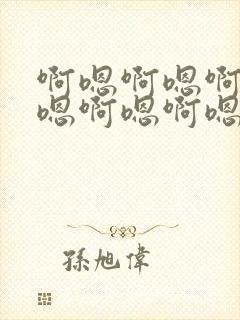 啊嗯啊嗯啊
嗯啊嗯啊嗯
孫旭偉